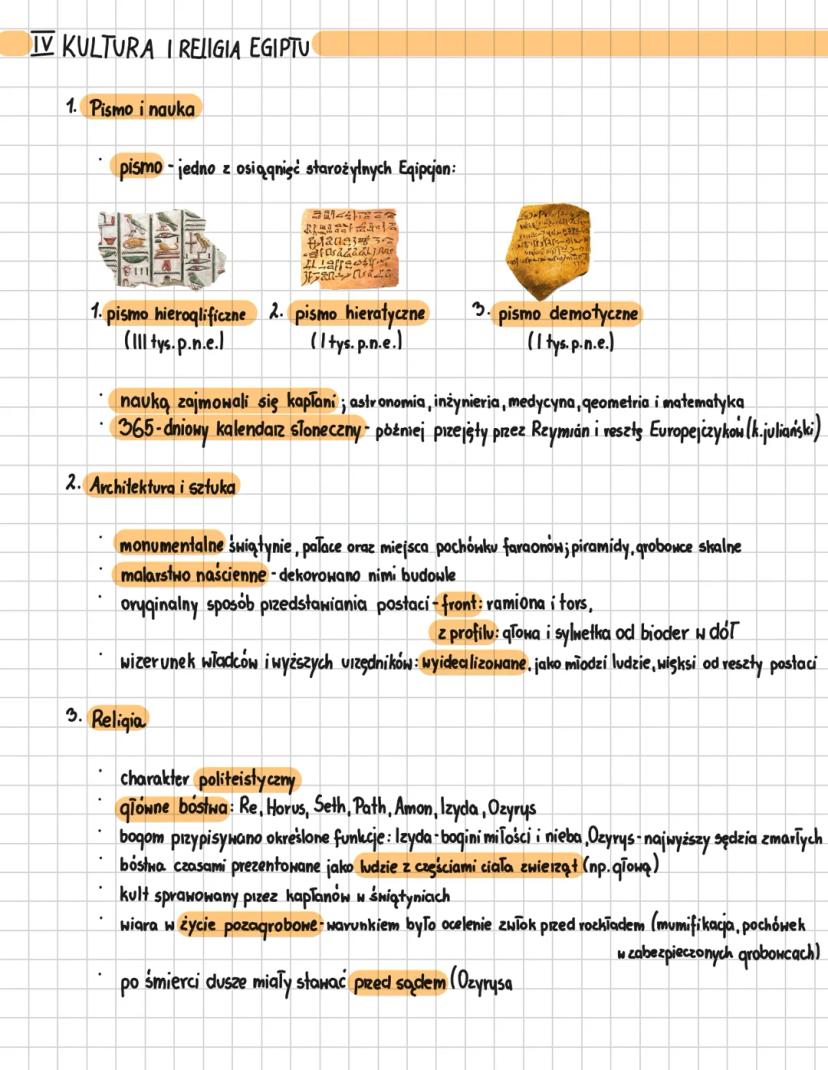 IV KULTURA I RELIGIA EGIPTU
1. Pismo i nauka
· pismo - jedno z osiągnięć starożytnych Egipcjan:
1. pismo hieroglificzne 2. pismo hieratyczne 3. pismo demotyczne
(III tys. p.n.e.) (I tys. p.n.e.) (I tys. p.n.e.)
· nauką zajmowali się kapłani; astronomia, inżynieria, medycyna, geometria i matematyka
· 365-dniowy kalendarz słoneczny - później przejęty przez Rzymian i resztę Europejczyków (k.juliański)
2. Architektura i sztuka
· monumentalne świątynie, pałace oraz miejsca pochówku faraonów; piramidy, grobowce skalne
· malarstwo naścienne - dekorowano nimi budowle
· oryginalny sposób przedstawiania postaci - front: ramiona i tors,
z profilu: głowa i sylwetka od bioder w dół
· wizerunek władców i wyższych urzędników: wyidealizowane, jako młodzi ludzie, więksi od reszty postaci
3. Religia
· charakter politeistyczny
· główne bóstwa: Re, Horus, Seth, Path, Amon, Izyda, Ozyrys
· bogom przypisywano określone funkcje: Izyda - bogini miłości i nieba, Ozyrys - najwyższy sędzia zmarłych
· bóstwa czasami prezentowane jako ludzie z częściami ciała zwierząt (np. głową)
· kult sprawowany przez kapłanów w świątyniach
· wiara w życie pozagrobowe - warunkiem było ocelenie zwłok przed rozkładem (mumifikacja, pochówek
w zabezpieczonych grobowcach)
· po śmierci dusze miały stawać przed sądem (Ozyrysa